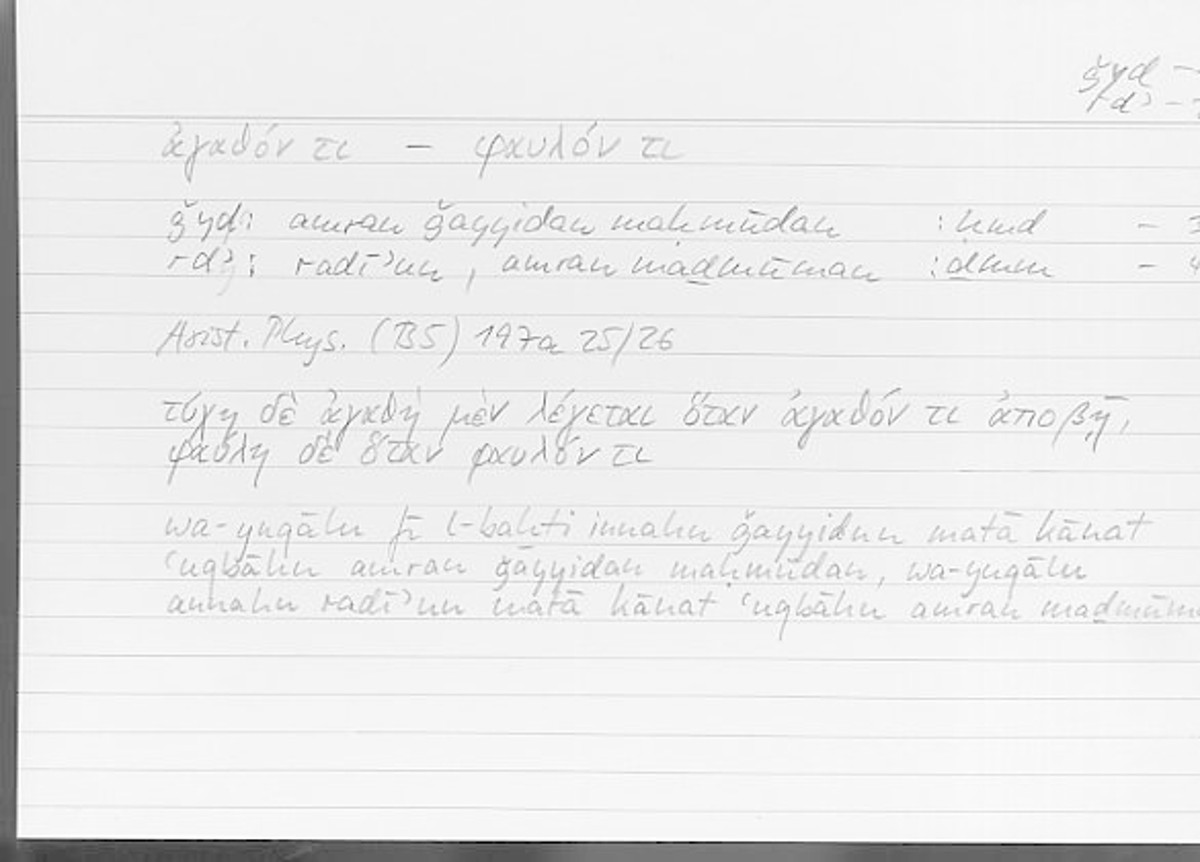 ǧyd –
rdʾ –
ἀγαθόν τι – φαυλόν τι
ǧyd: amran ǧayyidan maḥmūdan :ḥmd –
rdʾ: radīʾun, amran maḏmūman :ḏmm – 4
Arist. Phys. (B5) 197a 25/26
τύχη δὲ ἀγαθὴ μὲν λέγεται ὅταν ἀγαθόν τι ἀποβῇ,
φαύλη δὲ ὅταν φαυλόν τι
wa-yuqālu fī l-baḫti innahu ǧayyidun matā kānat
ʿuqbāhu amran ǧayyidan maḥmūdan, wa-yuqālu
annahu radīʾun matā kānat ʿuqbāhu amran maḏmūm